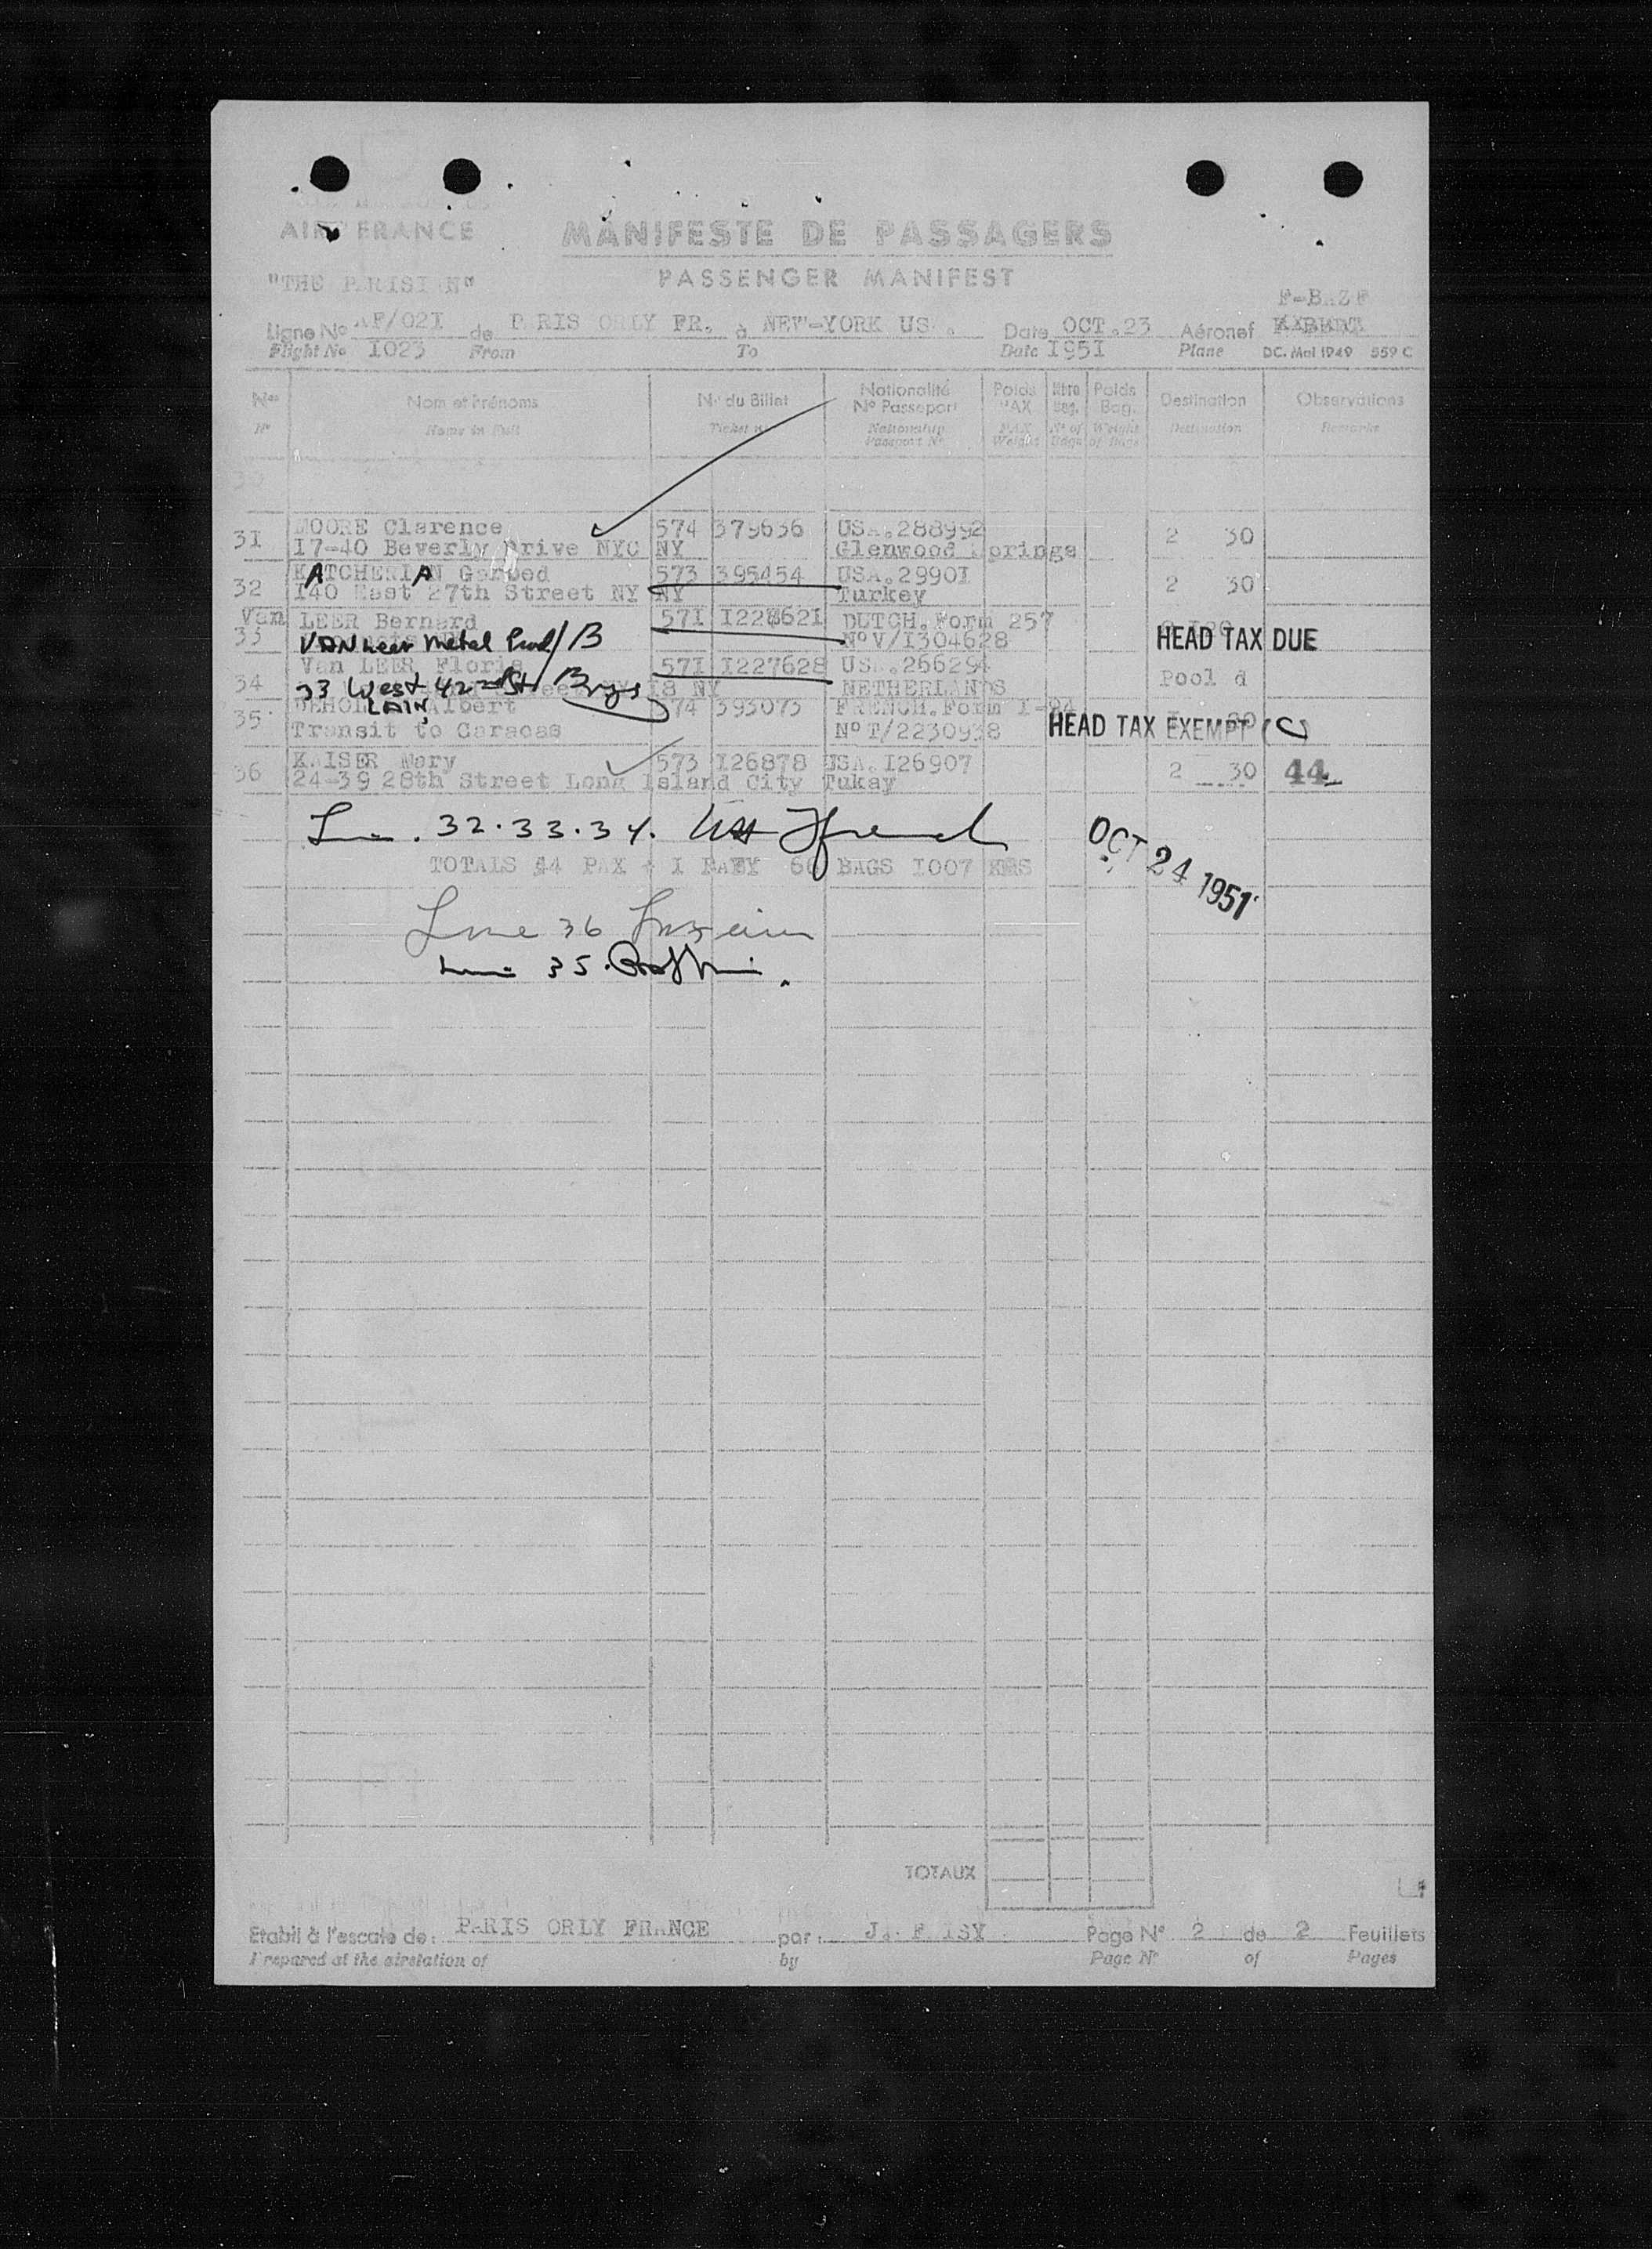 AIR FRANCE
MANIFESTE DE PASSAGERS
"THE PARISIAN"
PASSENGER MANIFEST
F-BAZF
Ligne No AF/021 de PARIS ORLY FR. à NEW-YORK US . Date OCT.23 Aéronef
Flight No 1023 From To Date 1951 Plane DC. Mai 1949 559 C
Nos Nom et Prénoms No du Billet Nationalité No Passeport Poids PAX Nbre Bag. Poids Bag. Destination Observations
No Name in Full Ticket no Nationality Passport No PAX Weight No of Bags Weight of Bags Destination Remarks
30
31 MOORE Clarence 574 379636 USA.288992 2 30
17-40 Beverly Drive NYC NY Glenwood Springs
32 KATCHERIAN Garabed 573 395454 USA.29901 2 30
140 East 27th Street NY NY Turkey
Van LEER Bernard 571 1228621 DUTCH.Form 257
33 VAN Leer Metal Prod/B No V/1304628 HEAD TAX DUE
Van LEER Floris 571 1227628 US .266294 Pool d
34 33 West 42nd St 18 NY NETHERLANDS
LAIN Albert 574 393073 FRENCH.Form I-94
35 Transit to Caracas No T/2230938 HEAD TAX EXEMPT (C)
36 KAISER Mary 573 126878 USA.126907 2 30 44
24-39 28th Street Long Island City Tukay
32.33.34.
OCT 24 1951
TOTALS 44 PAX + 1 BABY 66 BAGS 1007 KGS
Line 36
Line 35.
TOTAUX
Etabli à l'escale de: PARIS ORLY FRANCE par: Page No 2 de 2 Feuillets
Prepared at the airstation of by Page No of Pages